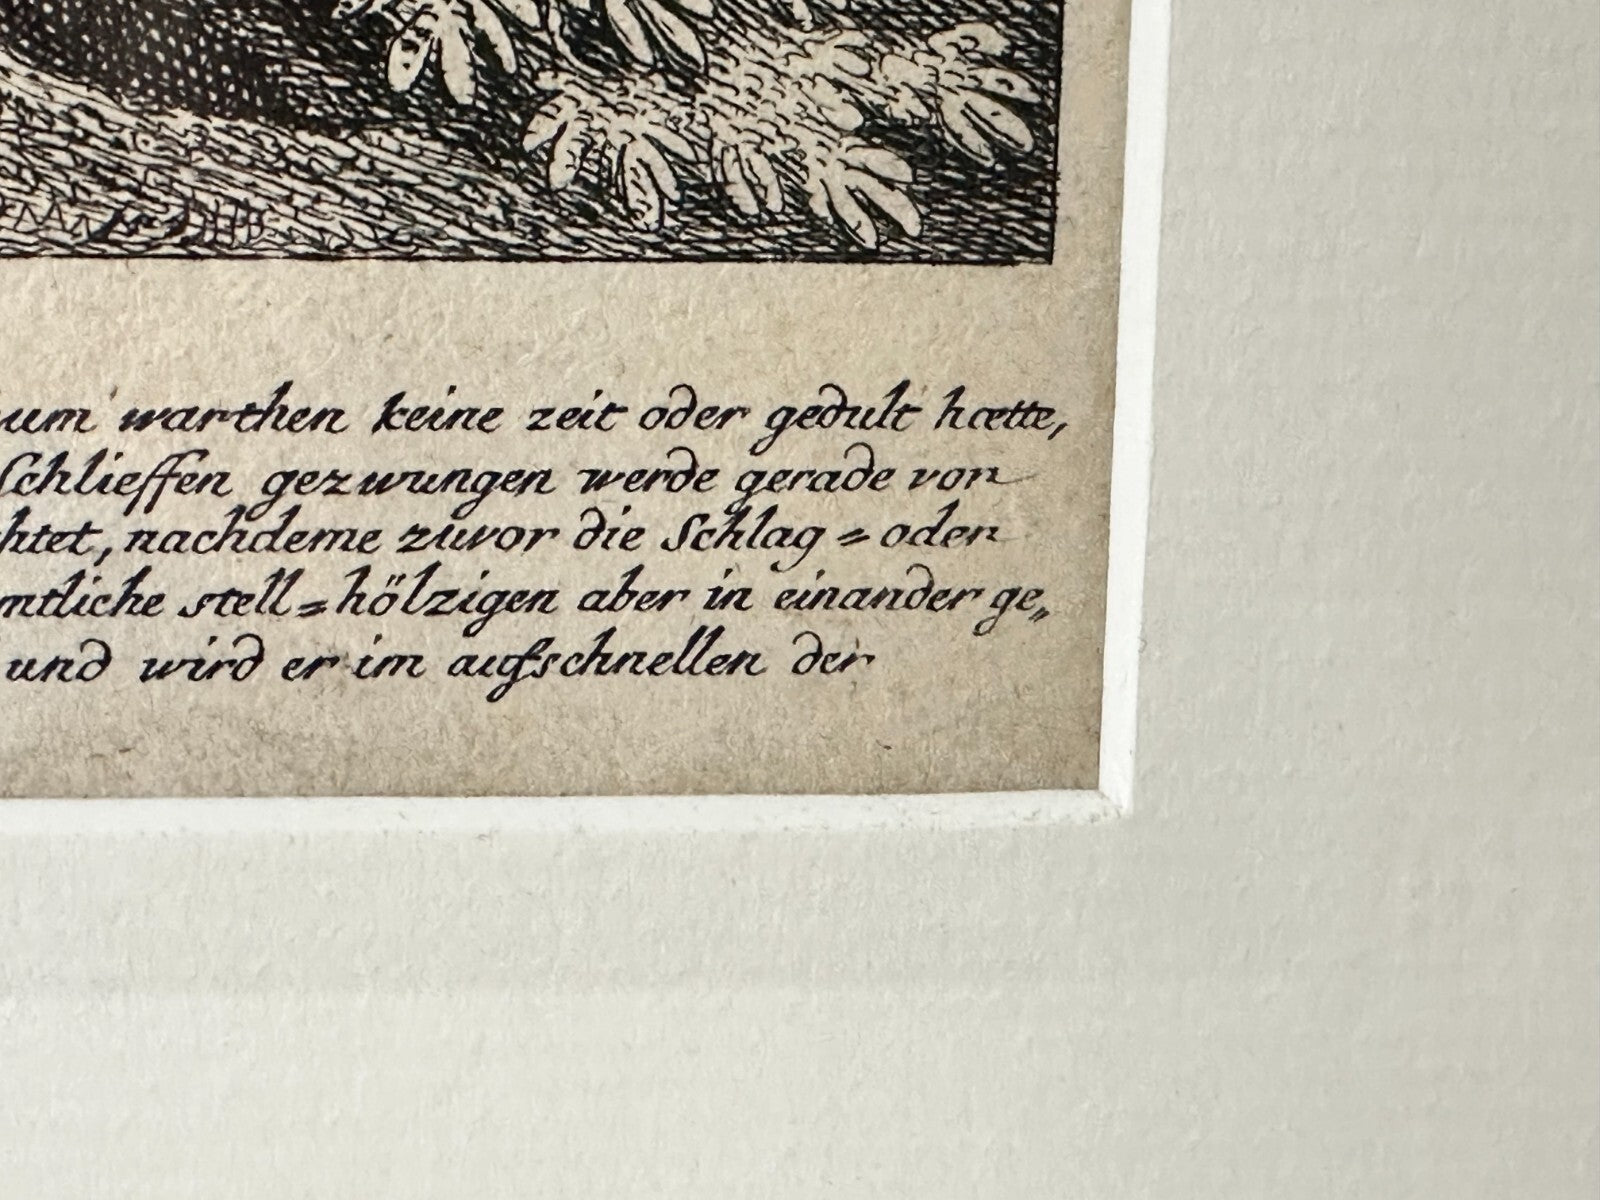 um warthen keine zeit oder gedult hætte,
Schlieffen gezwungen werde gerade von
htet, nachdeme zuvor die Schlag = oder
mtliche stell = hölzigen aber in einander ge„
und wird er im aufschnellen der